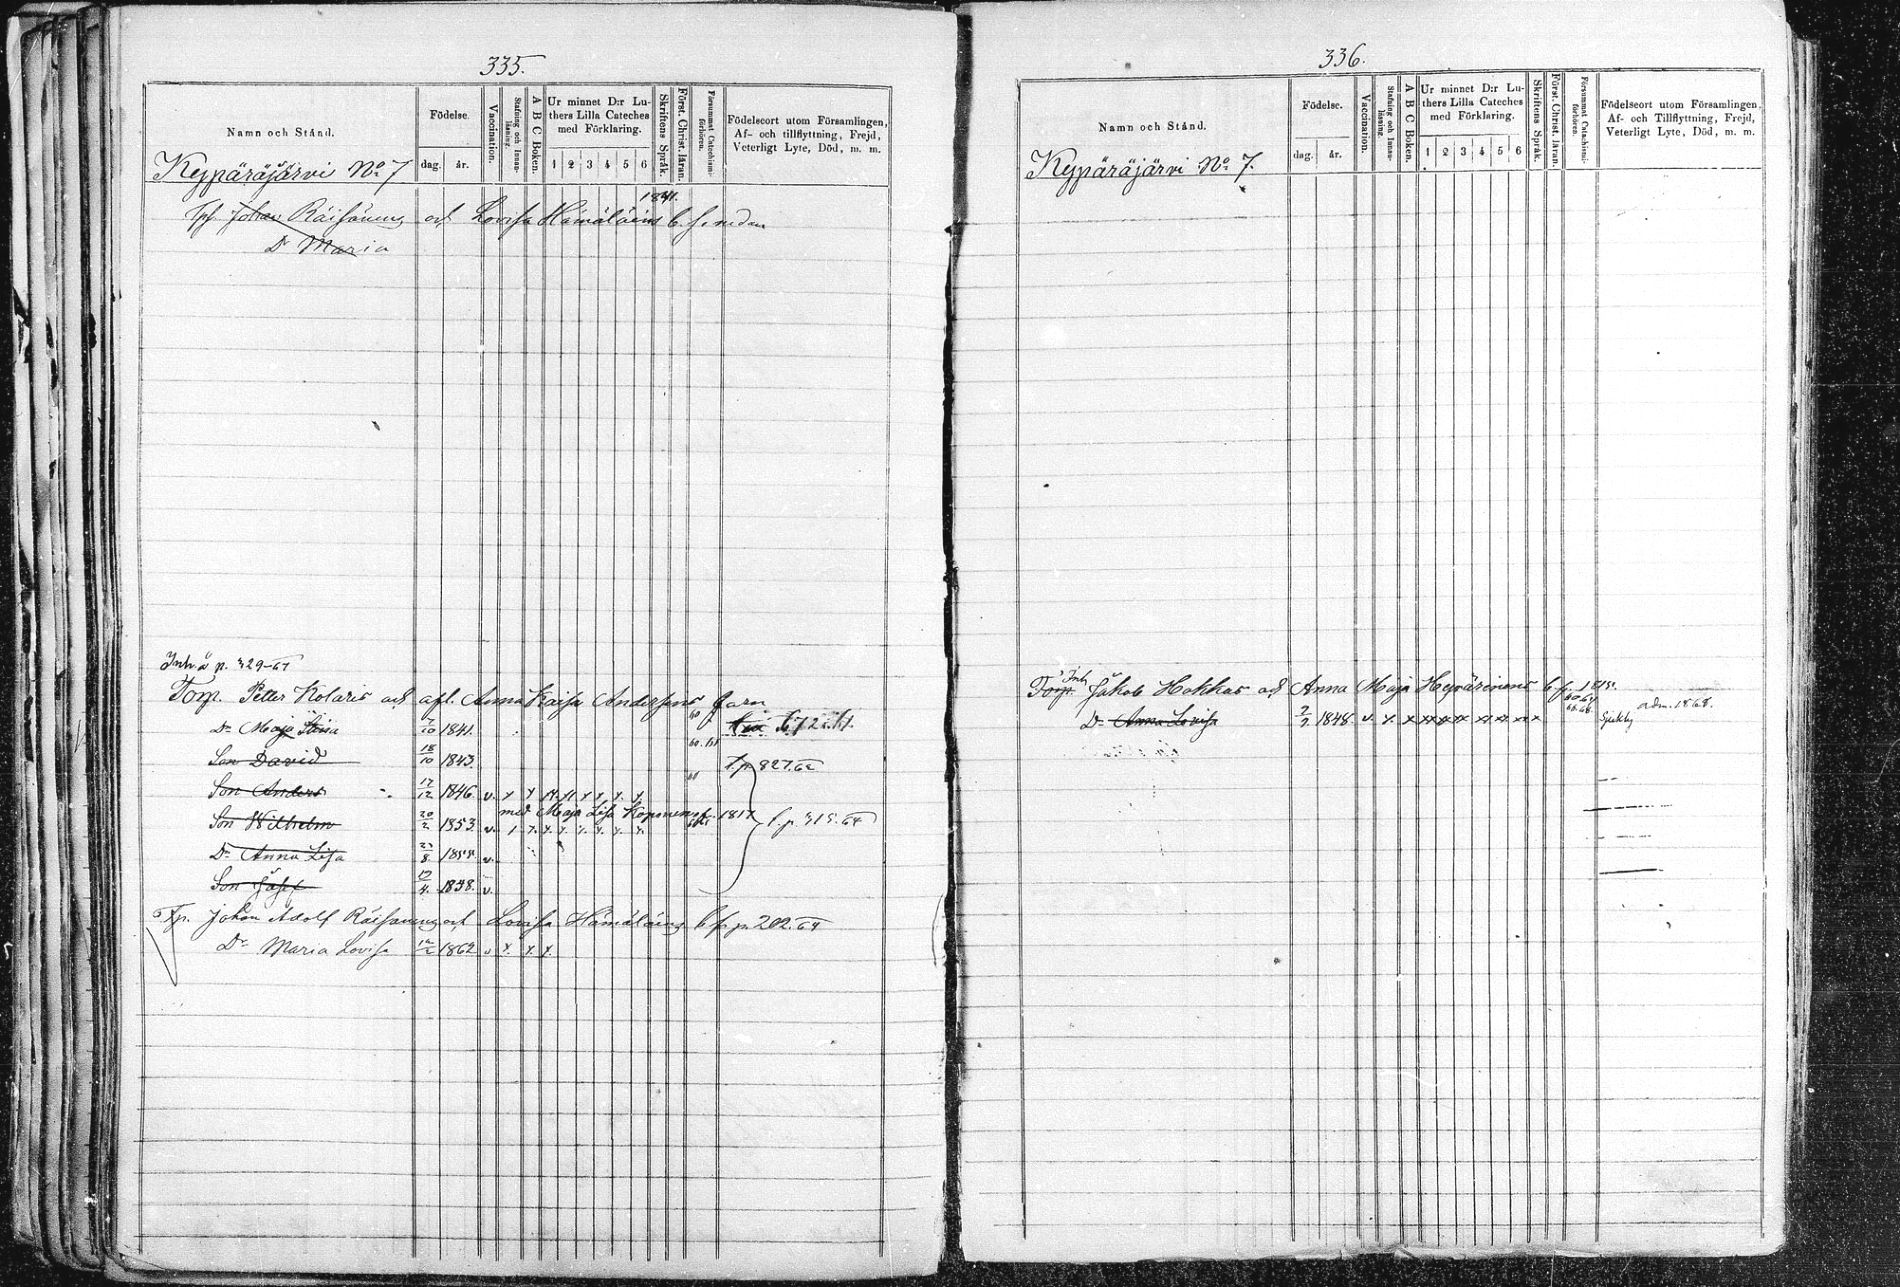 335.
Namn och Stånd.
Födelse.
dag. år.
Vaccination.
Stafning och Innan-läsning.
A B C Boken.
Ur minnet D:r Lu-
thers Lilla Cateches
med Förklaring.
1 2 3 4 5 6
Skriftens Språk.
Först. Christ. läran.
Försummat Catechismi-förhören.
Födelseort utom Församlingen,
Af- och tillflyttning, Frejd,
Veterligt Lyte, Död, m. m.
Keypäräjärvi No 7
1841.
Johan Räisänen och Lovisa Hämäläine b. f. nedan
Dr Maria
Inh å p. 329-61
Torp. Peter Kolaris och afl. Anna Kaisa Andersens barn
Dr Maja Stina 7/10 1841.
60. 61
Son David 18/10 1843. f. p. 827.62
Son Anders 17/12 1846. v. x x x x x x x x
med Maja Lisa Koponen f. 1817
Son Wilhelm 20/2 1853. v. f. p. 315.64
Dr Anna Lisa 23/8 1855 v.
Son Josef 12/4 1858. v.
Tp. Johan Adolf Räisänen och Lovisa Hämäläine b. f. p. 202.64
Dr Maria Lovisa 12/2 1862 v x. x x.
336.
Namn och Stånd.
Födelse.
dag. år.
Vaccination.
Stafning och Innan-läsning.
A B C Boken.
Ur minnet D:r Lu-
thers Lilla Cateches
med Förklaring.
1 2 3 4 5 6
Skriftens Språk.
Först. Christ. läran.
Försummat Catechismi-förhören.
Födelseort utom Församlingen,
Af- och Tillflyttning, Frejd,
Veterligt Lyte, Död, m. m.
Keypäräjärvi No 7.
Inh
Torp. Jakob Hakkar och Anna Maja Heyvärinens b. f. 1815.
Dr Anna Lovisa 2/2 1848. v. x. x xx xx xx xx xx Sjuklig adm. 1868.